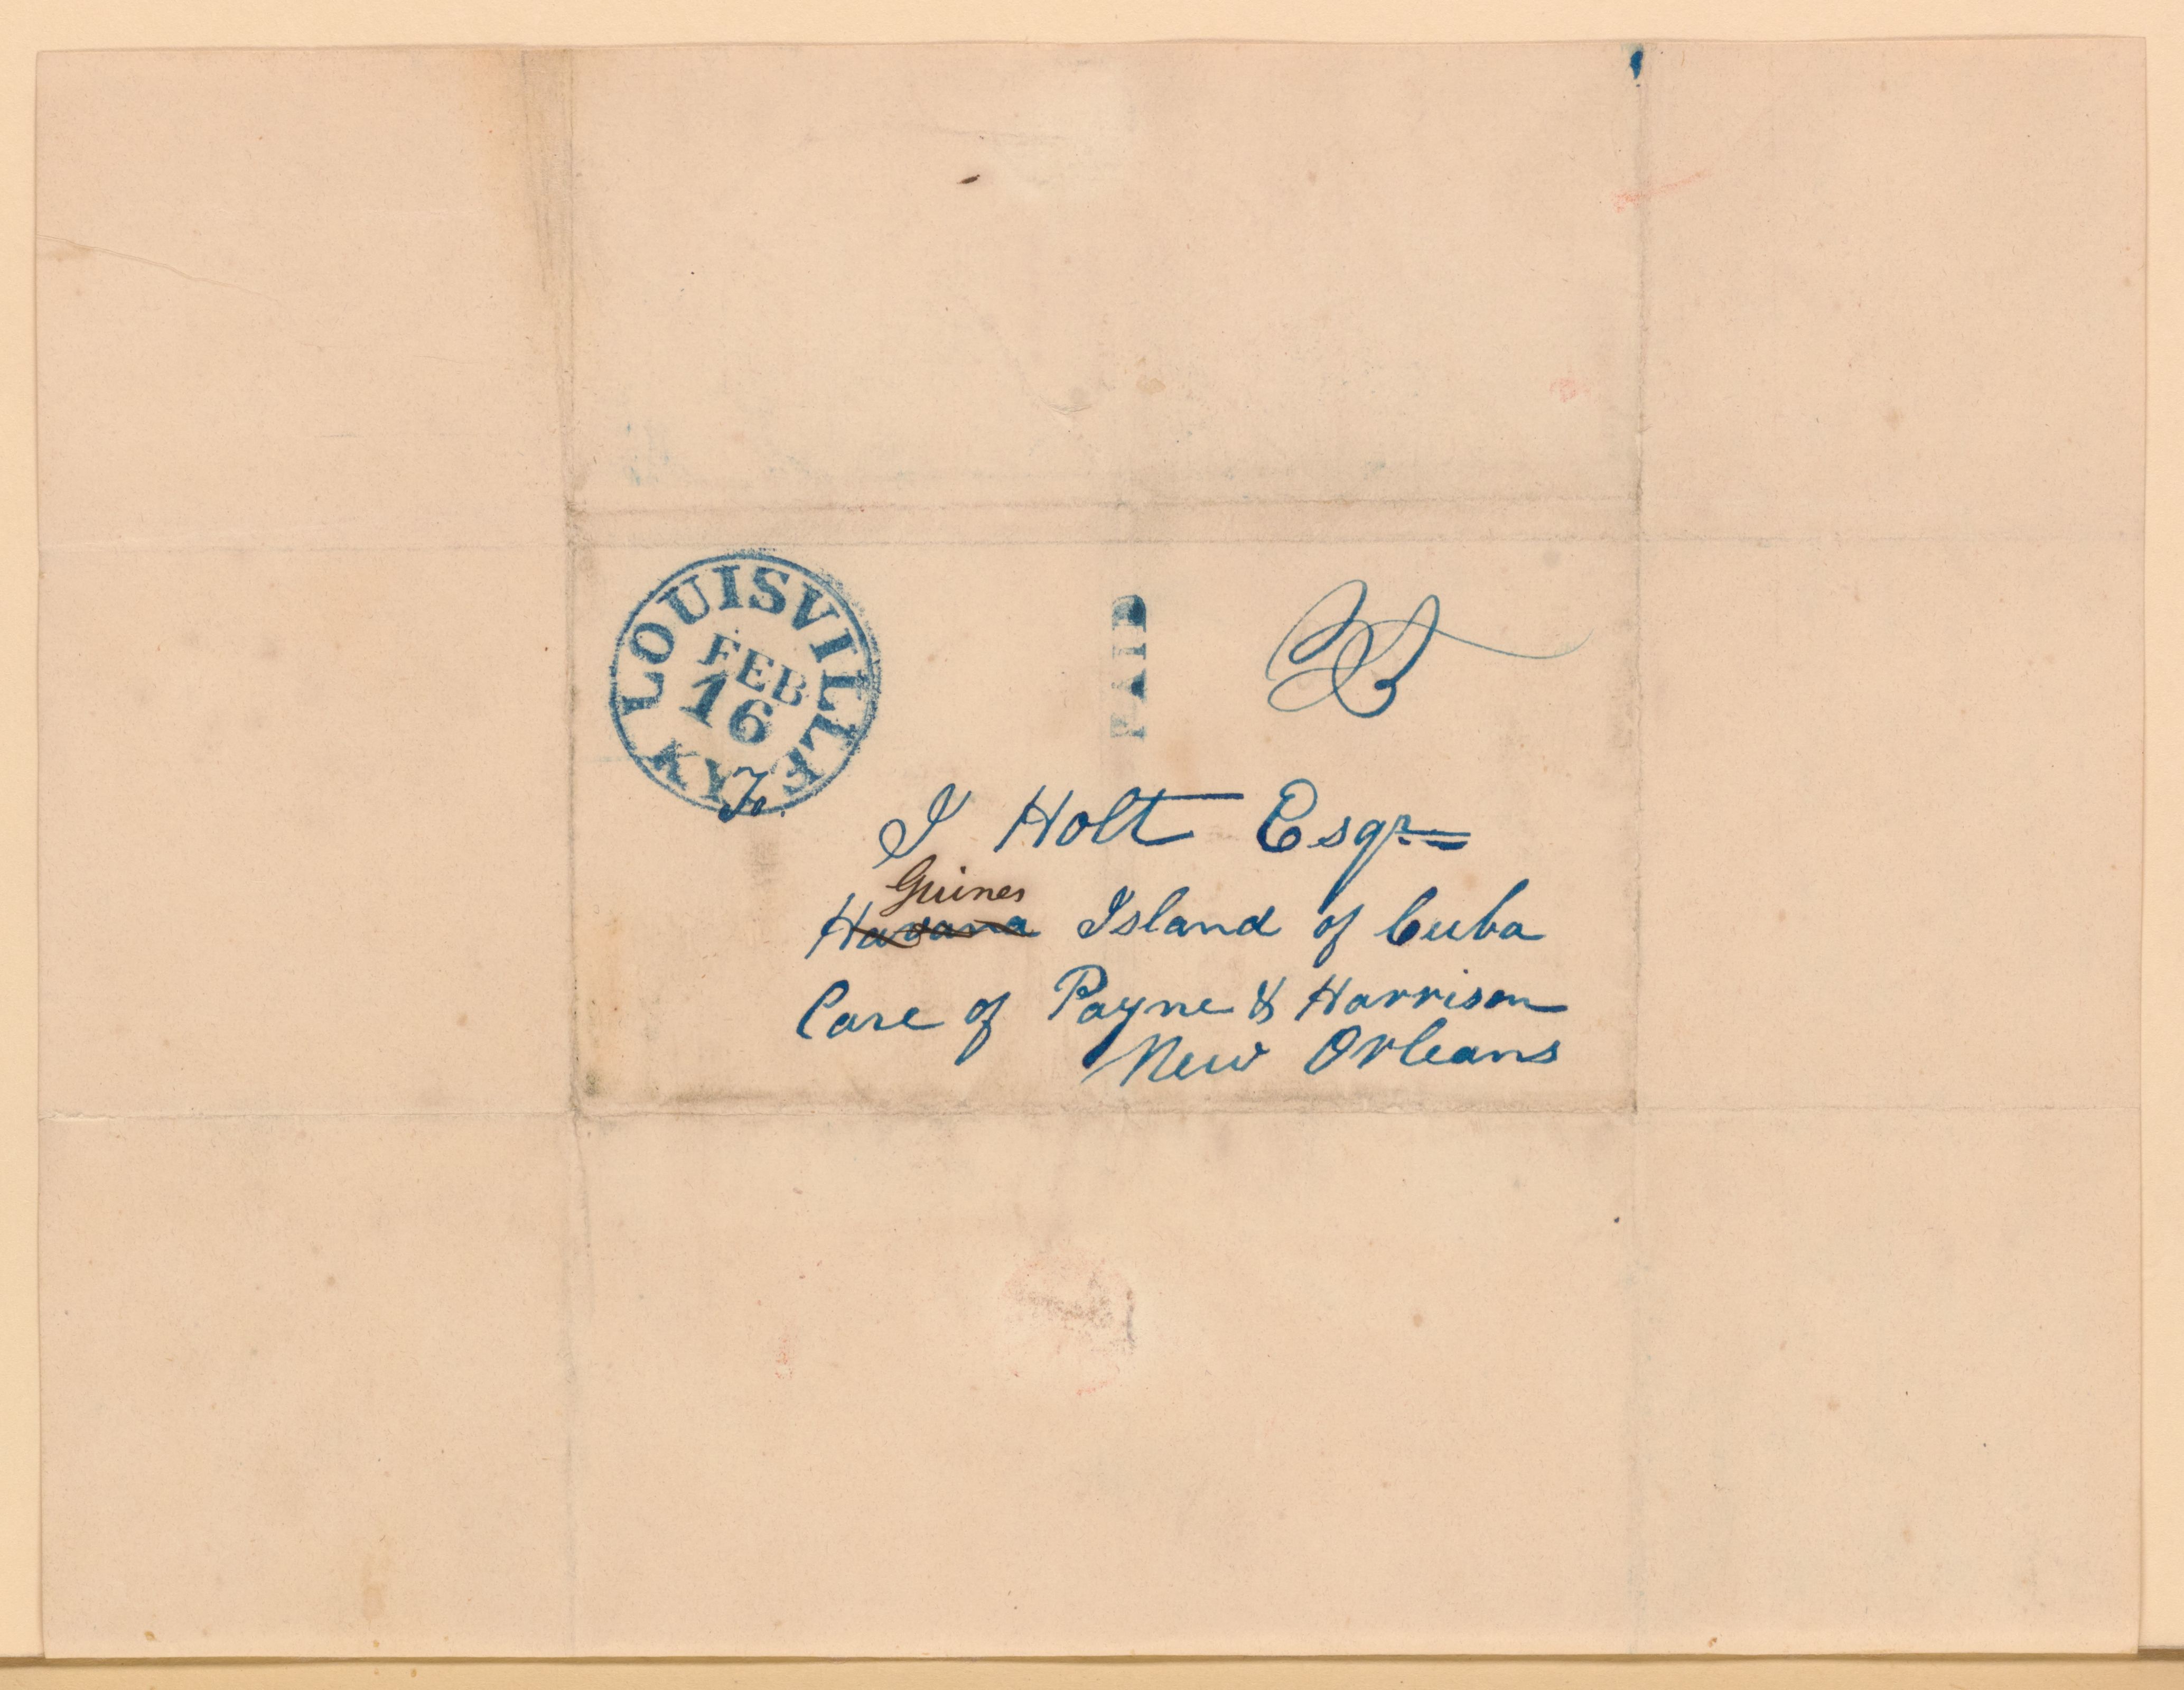 LOUISVILLE KY
FEB
16
PAID
To
J Holt Esqr
Guines
Havana Island of Cuba
Care of Payne & Harrison
New Orleans